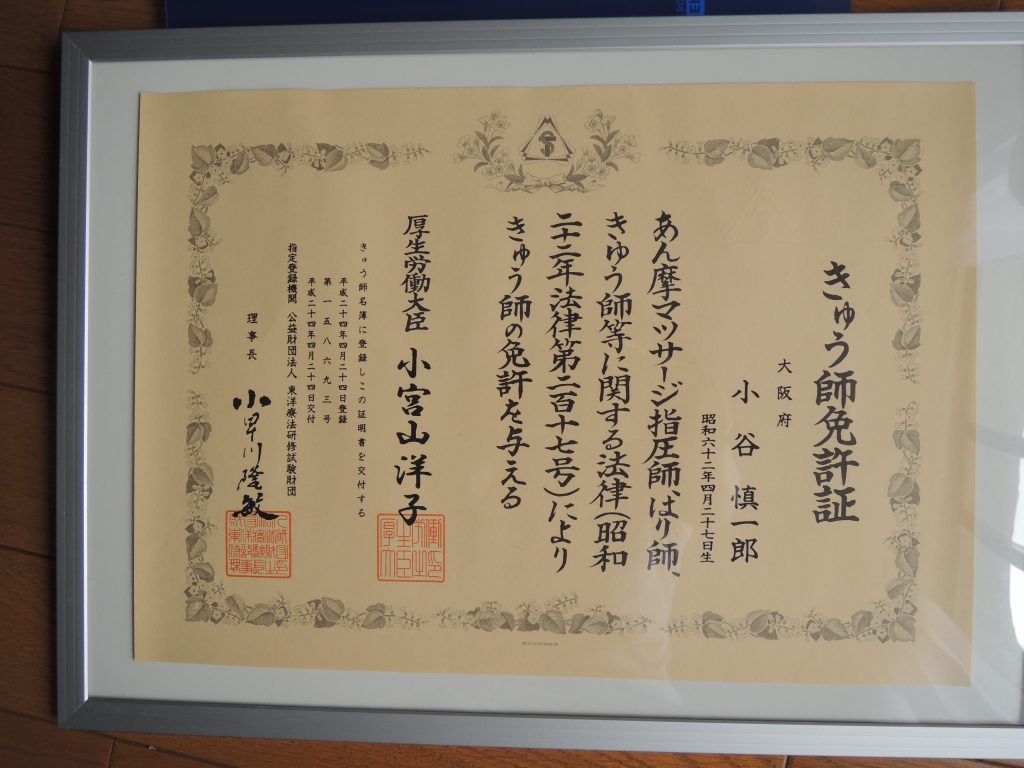 きゅう師免許証
大阪府
小谷慎一郎
昭和六十二年四月二十七日生
あん摩マツサージ指圧師、はり師、
きゆう師等に関する法律(昭和
二十二年法律第二百十七号)により
きゅう師の免許を与える
厚生労働大臣 小宮山洋子
きゅう師名簿に登録しこの証明書を交付する
平成二十四年四月二十四日登録
第一五八六九三号
平成二十四年四月二十四日交付
指定登録機関 公益財団法人 東洋療法研修試験財団
理事長 小早川隆敏